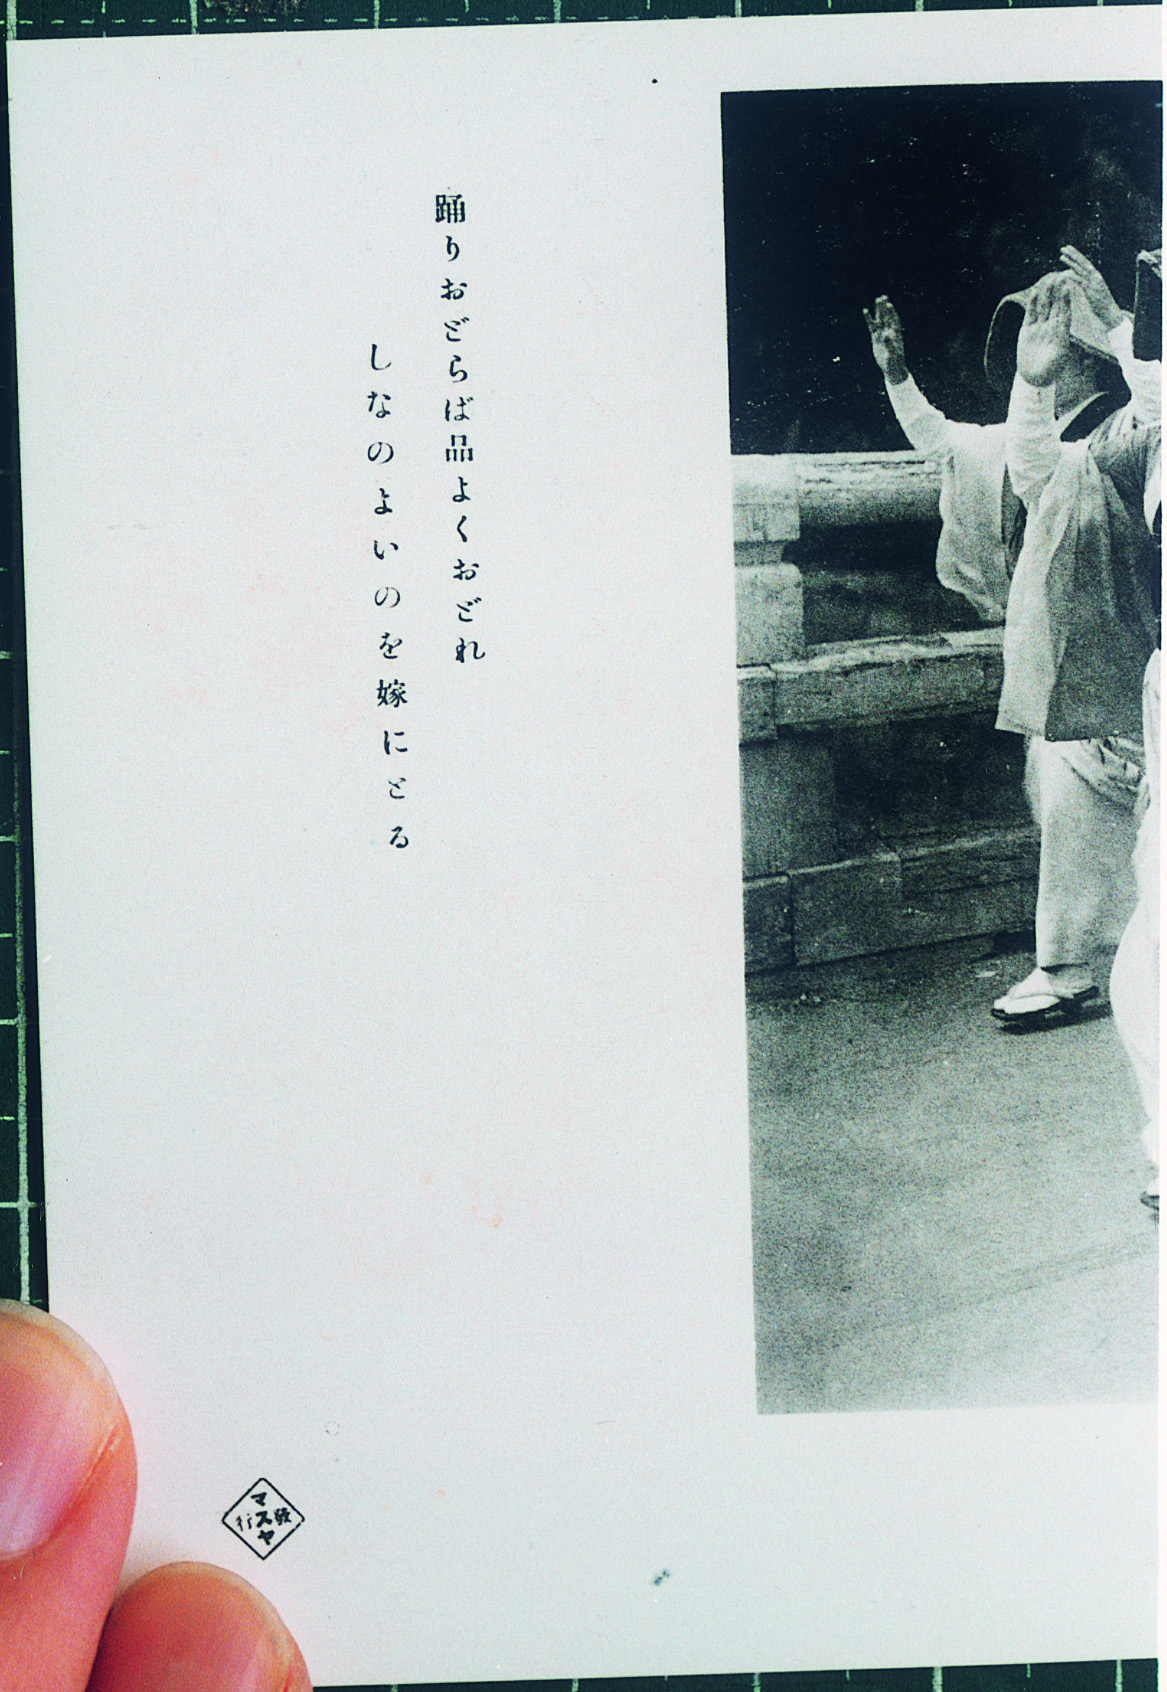 踊りおどらば品よくおどれ
しなのよいのを嫁にとる
マスヤ
發行